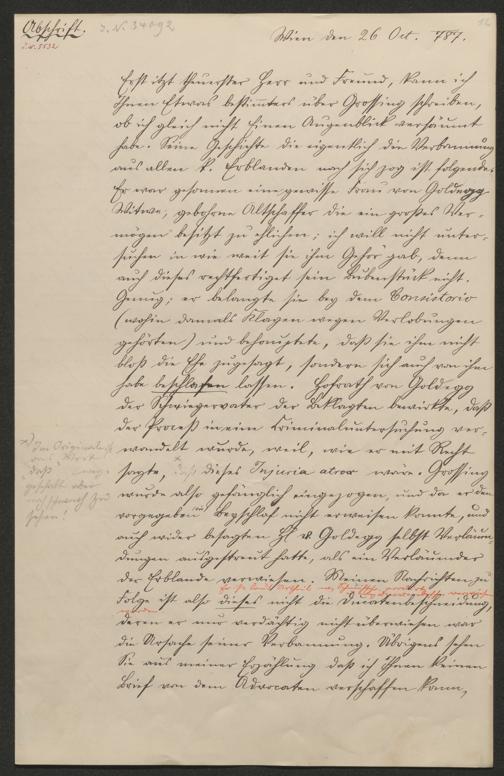 Abschrift. J. N. 34092
J. N. 5532
Wien den 26 Oct. 787.
Erst itzt theuerster Herr und Freund, kann ich
Ihnen Etwas bestimmters über Grossing schreiben,
ob ich gleich nicht Einen Augenblick versäumt
habe. Seine Geschichte die eigentlich die Verbannung
aus allen k. Erblanden nach sich zog ist folgende:
Er war gesonnen eine gewisse Frau von Goldegg
Witwe, geborhne Altschaffer die ein großes Ver-
mögen besitzt zu ehlichen; ich will nicht unter-
suchen in wie weit sie ihm Gehör gab, denn
auch dieses rechtfertiget sein Bubenstück nicht.
Genug; er belangte sie bey dem Consistorio
(wohin damals Klagen wegen Verlobungen
gehörten) und behauptete, daß sie ihm nicht
bloß die Ehe zugesagt, sondern sich auch von ihm
habe beschlafen lassen. Hofrath von Goldegg
der Schwiegervater der Beklagten bewirkte, daß
der Proceß in eine Criminaluntersuchung ver-
wandelt wurde, weil, wie er mit Recht
sagte, daß dieses Injuria atrox wäre. Grossing
wurde also gefänglich eingezogen, und da er den
vorgegebenen Beyschlaf nicht erweisen konnte, und
auch wider besagten H v. Goldegg selbst Verläum
dungen ausgestreut hatte, als ein Verläumder
der Erblande verwiesen. Meinen Nachrichten zu
Folge ist also dieses nicht die Ducatenbeschneidung,
deren er nur verdächtig nicht überwiesen war
die Ursache seiner Verbannung. Übrigens sehen
Sie aus meiner Erzählung daß ich Ihnen keinen
Brief von dem Advocaten verschaffen kann,
Im Original
das Wort
daß
aber
zu
sehen!